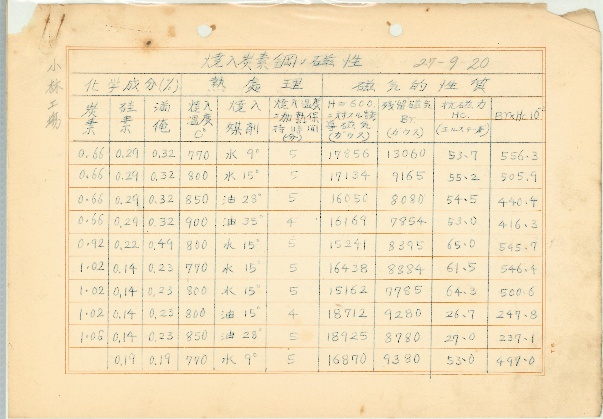 小林工場
焼入炭素鋼ノ磁性 27-9-20
化学成分(%) 熱処理 磁気的性質
炭素 硅素 満俺 焼入温度C° 焼入媒剤 焼入温度ニ加熱保持時間(分) H=500ニ対スル 磁気(ガウス) 残留磁気Br.(ガウス) 抗磁力Hc.(エルステッド) Br×Hc.10⁻³
0.66 0.29 0.32 770 水 9° 5 17856 13060 53.7 556.3
0.66 0.29 0.32 800 水 15° 5 17134 9165 55.2 505.9
0.66 0.29 0.32 850 油 28° 5 16050 8080 54.5 440.4
0.66 0.29 0.32 900 油 35° 4 16169 7854 53.0 416.3
0.92 0.22 0.49 800 水 15° 5 15241 8395 65.0 545.7
1.02 0.14 0.23 770 水 15° 5 16438 8884 61.5 546.4
1.02 0.14 0.23 800 水 15° 5 15162 7785 64.3 500.6
1.02 0.14 0.23 800 油 15° 4 18712 9280 26.7 247.8
1.05 0.14 0.23 850 油 28° 5 18925 8780 27.0 237.1
0.19 0.19 770 水 9° 5 16870 9380 53.0 497.0